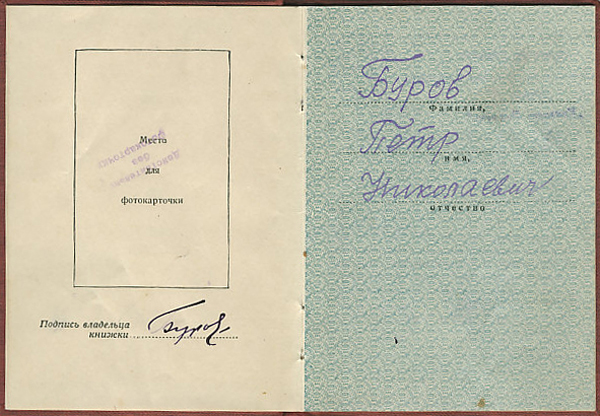 Место
для
фотокарточки
Подпись владельца
книжки Буров
Буров
Фамилия,
Петр
имя,
Николаевич
отчество